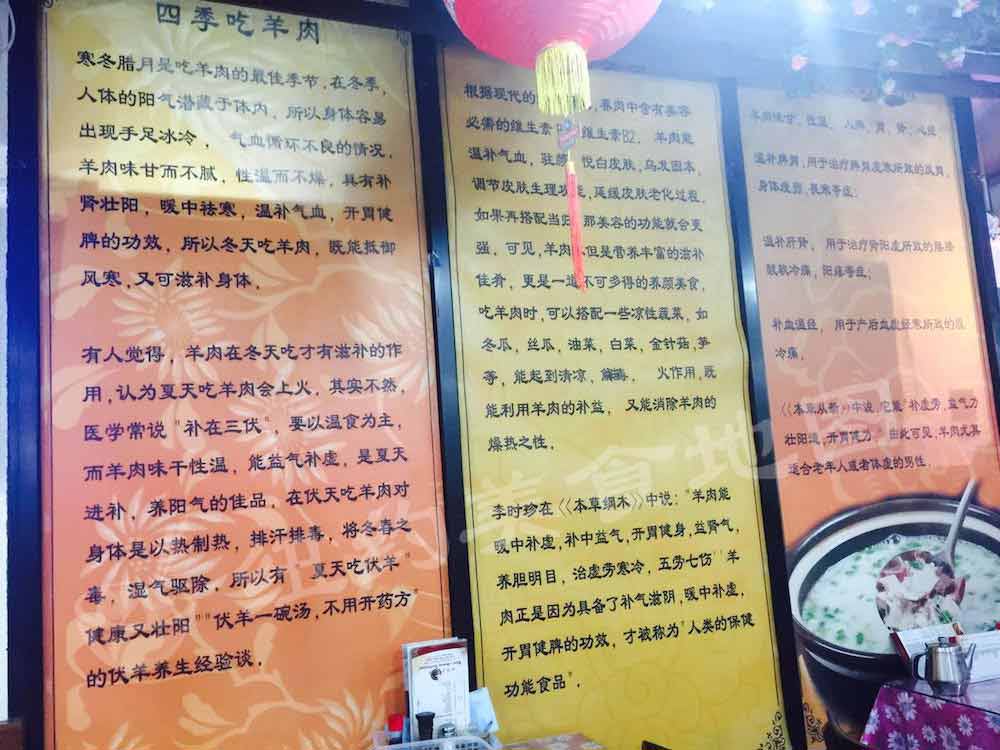 四季吃羊肉
寒冬腊月是吃羊肉的最佳季节，在冬季，
人体的阳气潜藏于体内，所以身体容易
出现手足冰冷，气血循环不良的情况，
羊肉味甘而不腻，性温而不燥，具有补
肾壮阳，暖中祛寒，温补气血，开胃健
脾的功效，所以冬天吃羊肉，既能抵御
风寒，又可滋补身体，
有人觉得，羊肉在冬天吃才有滋补的作
用，认为夏天吃羊肉会上火，其实不然，
医学常说"补在三伏"，要以温食为主，
而羊肉味干性温，能益气补虚，是夏天
进补，养阳气的佳品，在伏天吃羊肉对
身体是以热制热，排汗排毒，将冬春之
毒，湿气驱除，所以有"夏天吃伏羊"
健康又壮阳""伏羊一碗汤，不用开药方"
的伏羊养生经验谈，
根据现代的 养肉中含有美容
必需的维生素 维生素B2，羊肉能
温补气血，驻颜 悦白皮肤，乌发固本，
调节皮肤生理功能，延缓皮肤老化过程，
如果再搭配当归 那美容的功能就会更
强，可见，羊肉 但是营养丰富的滋补
佳肴，更是一道不可多得的养颜美食，
吃羊肉时，可以搭配一些凉性蔬菜，如
冬瓜，丝瓜，油菜，白菜，金针菇，笋
等，能起到清凉， 火作用，既
能利用羊肉的补益，又能消除羊肉的
燥热之性，
李时珍在《本草纲木》中说："羊肉能
暖中补虚，补中益气，开胃健身，益肾气，
养胆明目，治虚劳寒冷，五劳七伤"羊
肉正是因为具备了补气滋阴，暖中补虚，
开胃健脾的功效，才被称为"人类的保健
功能食品"，
羊肉味甘，性温，入脾，胃，肾，心经
温补脾胃，用于治疗脾胃虚寒所致的反胃，
身体瘦弱，畏寒等症；
温补肝肾，用于治疗肾阳虚所致的腰膝
酸软冷痛，阳痿等症；
补血温经，用于产后血虚经寒所致的腹
冷痛，
《本草从新》中说，它能"补虚劳，益气力
壮阳道，开胃健力"，由此可见，羊肉尤其
适合老年人道者体虚的男性，
纽约美食地图